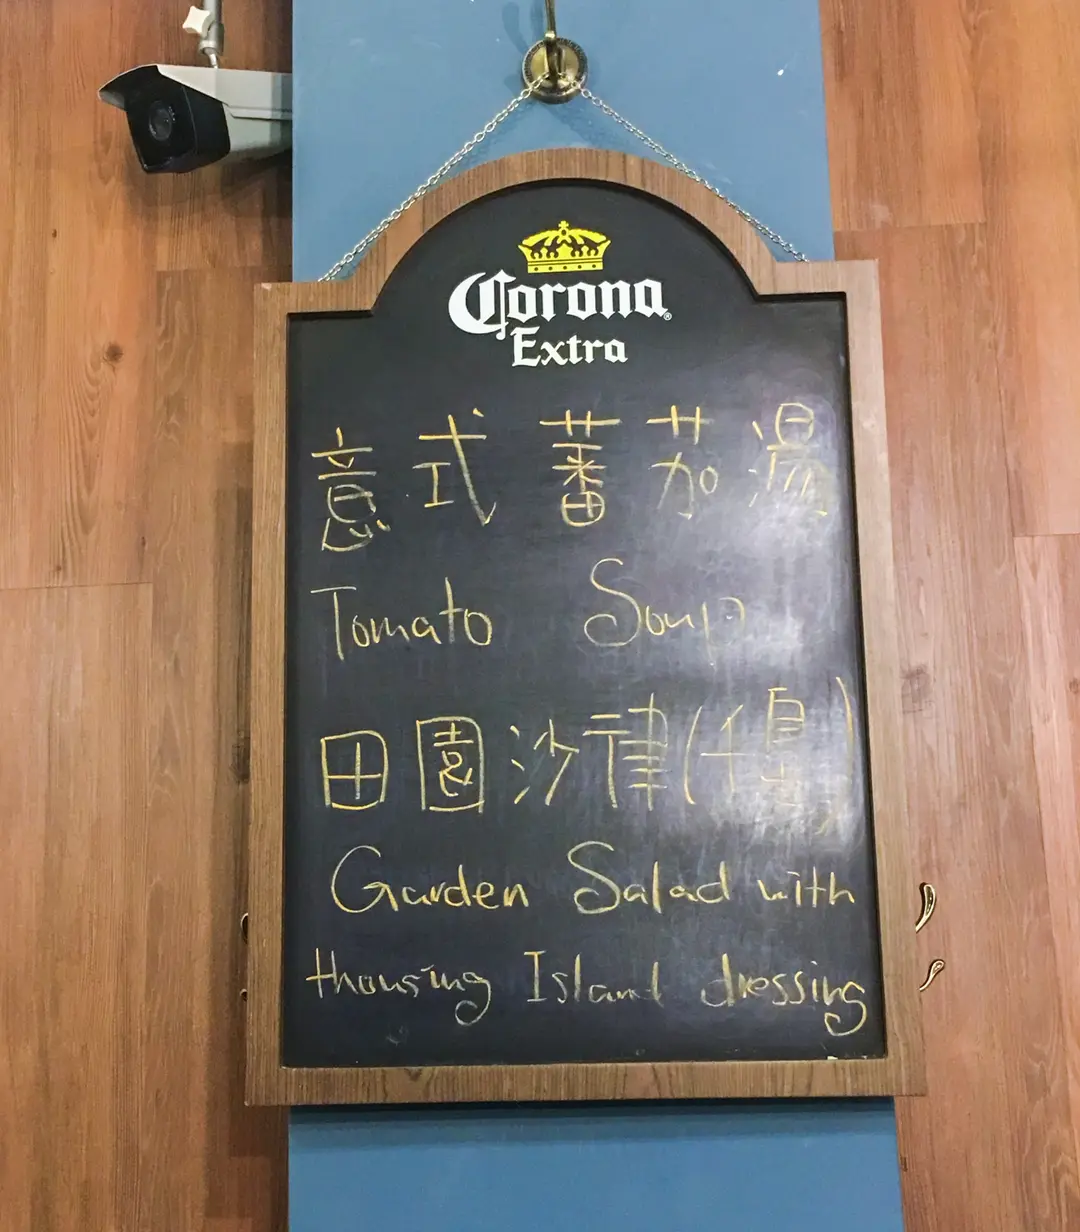 Corona
Extra
意式蕃茄湯
Tomato Soup
田園沙律(千島)
Garden Salad with
thousing Island dressing